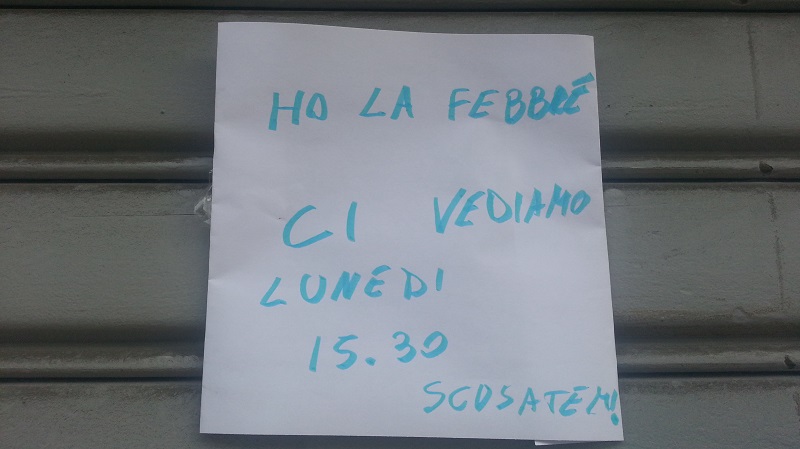 HO LA FEBBRE
CI VEDIAMO
LUNEDI
15.30
SCUSATEMI!